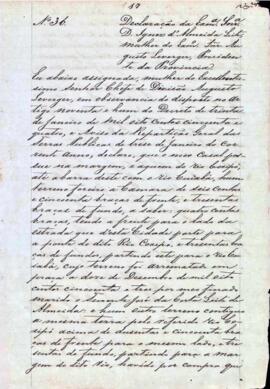 17
Nº 36. Declaração da Exmª Snrª
D. Ignez d'Almeida Leite,
mulher do Exmº Snr. Au-
gusto Leverger, Presiden-
te da Provincia
Eu abaixo assignada, mulher do Excellentis-
simo Senhor Chefe de Divisão Augusto
Leverger, em observancia do disposto no ar-
tigo noventa e hum do Decreto de trinta
de Janeiro de mil oito centos cincoenta e
quatro, e Aviso da Repartição Geral das
Terras Publicas de treze de Janeiro do cor-
rente anno, declaro, que o meu Casal pos-
sue na margem, aquem do rio Coxipó,
até abarra deste com o rio Cuiabá, hum
terreno foreiro a Camara de seis centas
e cincoenta braças de frente, e trezentas
braças de fundo, a saber, quatro centas
braças, tendo a frente para o lado da
estrada que desta Cidade parte para
a ponte do dito Rio Coxipó, e trezentas bra-
ças de fundo, partindo este para o rio Cui-
abá, cujo terreno foi arrematado em
praça a doze de Dezembro de mil oito
centos cincoenta e tres por meu finado
marido o Tenente José da Costa Leite de
Almeida e hum outro terreno contiguo
e mesma terra pelo referido rio Co-
xipó acima de duzentas e cincoenta bra-
ças de frente para o mesmo lado, e tre-
zentas de fundo, partindo para a mar-
gem do dito Rio, havido por compra que